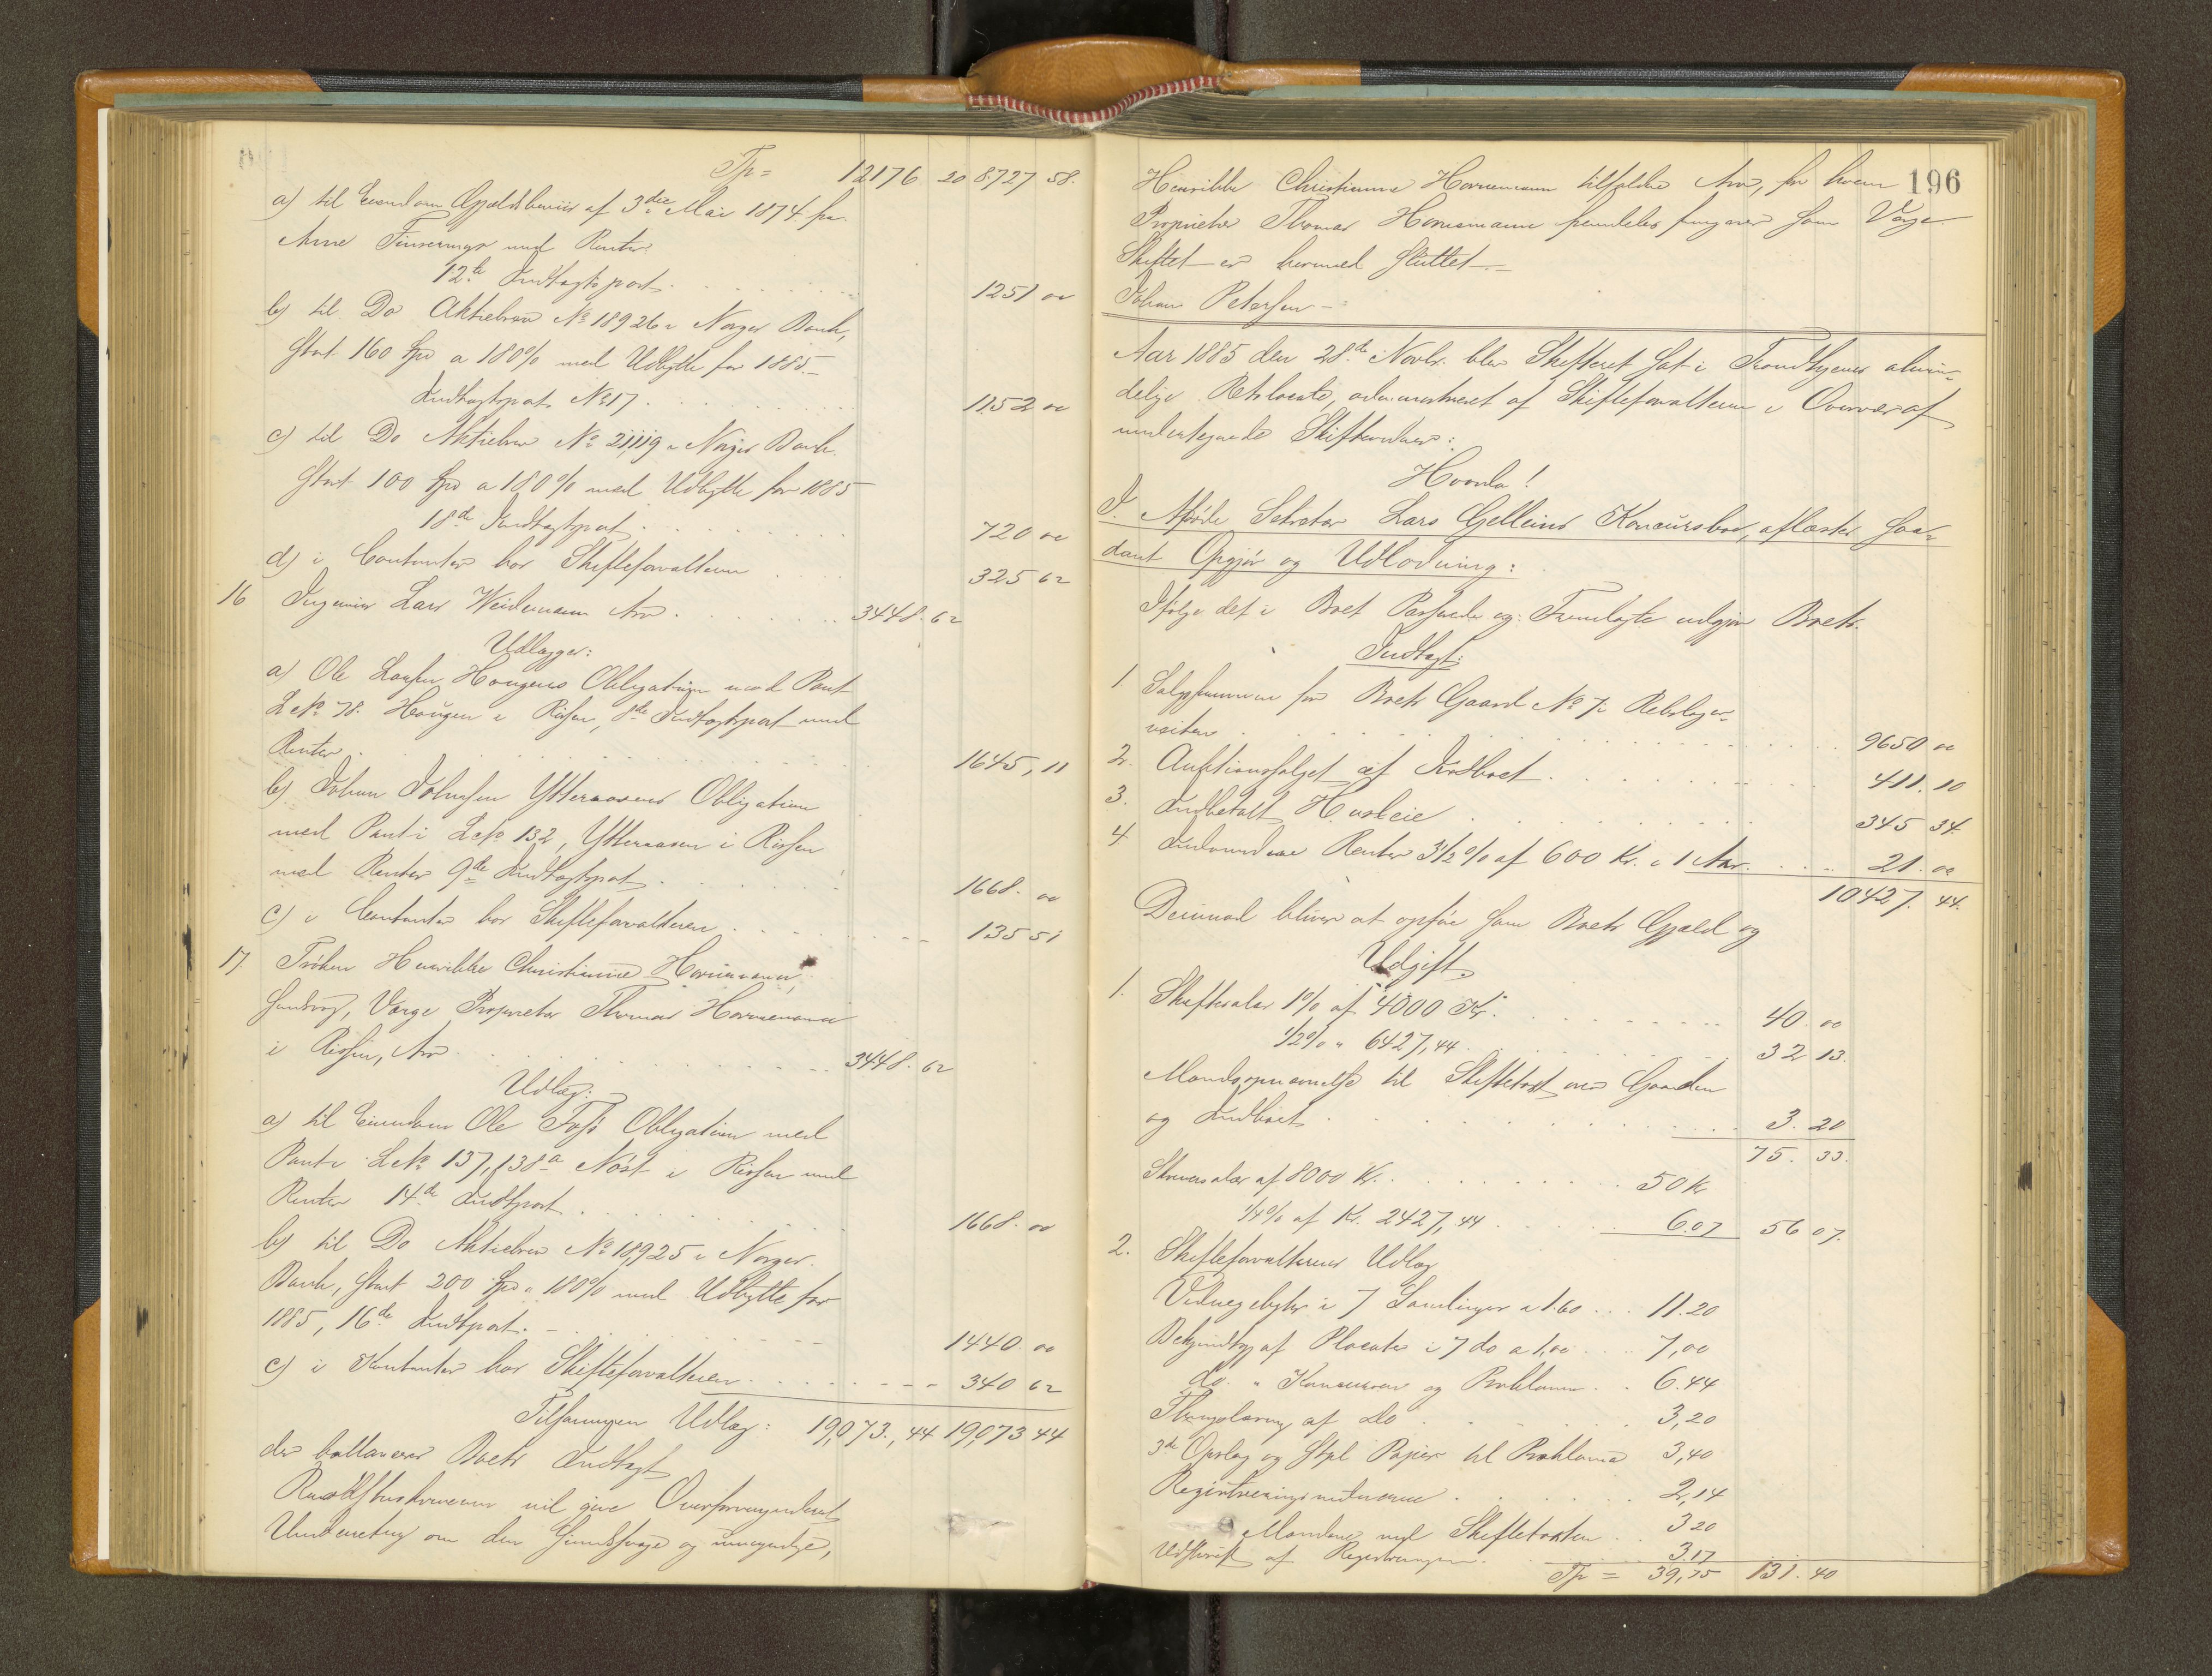 Tp = 12176 20 8727 58.
a) til Eiendom Gjældsbeviis af 3die Mai 1874 fra
Arne  med Renter
12te Indtagtspost 1251 00
b) til Do Aktiebrev No 18926 i Norges Bank,
stort 160 Spd a 180% med Udbytte for 1885.
Indtagtspost No 17 1152 00
c) til Do Aktiebrev No 21119 i Norges Bank
stort 100 Spd a 180% med Udbytte for 1885
18de Indtagtspost 720 00
d) i Contanter hos Skifteforvalteren 325 62
16 Ingeniør Lars Weidemann Arv 3448. 62
Udlægges:
a) Ole Larsen Hougens Obligation med Pant
L.No. 78. Hougen i Rissen, 8de Indtagtspost med
Renter 1645, 11
b) Johan Johnsen Ytteraasens Obligation
med Pant i L.No. 132, Ytteraasen i Rissen
med Renter 9de Indtagtspost 1668. 00
c) i Contanter hos Skifteforvalteren 135 51
17 Frøken Henrikke Christianne Hornemann,
sindssvag, Værge Proprietær Thomas Hornemann
i Rissen, Arv 3448. 62
Udlæg:
a) til Eiendom Ole Obligation med
Pant i L.No. 137, 138a Nøst i Rissen med
Renter 14de Indtpost 1668. 00
b) til Do Aktiebrev No 18925 i Norges
Bank, stort 200 Spd a 180% med Udbytte for
1885, 16de Indtpost 1440 00
c) i Kontanter hos Skifteforvalteren 340 62
Tilsammen Udlæg: 19,073., 44 19,073 44
der ballancerer Boets Indtagt
vil give Overformynderiet
Underretning om den Sindssvage og umyndige,
196
Henrikke Christianne Hornemann tilfaldne Arv, for hvem
Proprietær Thomas Hornemann fremdeles fungerer som Værge
Skiftet er hermed sluttet
Johan Petersen
Aar 1885 den 28de Novbr. blev Skifteret sat i Trondhjems almin-
delige Retslocale, administreret af Skifteforvalteren i Overvær af
undertegnede Skiftevidner:
Hvorda!
I. Afdøde Sekretær Lars Gelleins Konkursbo, aflæstes saa-
dant Opgjør og Udlodning:
Ifølge det i Boet Passerede og Fremlagte udgjør Boets
Indtagt:
1. Salgssummen for Boets Gaard No 7 i Rebslager-
veiten 9650 00
2. Auktionssalget af Indboet 411. 10
3. Indbetalt Husleie 345 34.
4 Indvundne Renter 3 1/2% af 600 Kr. i 1 Aar 21. 00
10427. 44.
Derimod bliver at opføre som Boets Gjæld og
Udgift
1. Skiftesalær 1% af 4000 Kr. 40. 00
1/2% " 6427,44 32 13.
Mandsopnævnelse til Skiftetaxt over Gaarden
og Indboet 3. 20
75. 33.
Skriversalær af 8000 Kr. 50 Kr
1/4% af Kr. 2427,44 6.07 56 07.
2. Skifteforvalterens Udlæg
Vidnegebyhr i 7 Samlinger a 1.60 11.20
Bekjendtgj af Placater i 7 do a 1,00 7,00
do. " Konkursen og Proklama 6.44
Stemplering af do 3,20
3de Opslag og Stpl Papir til Proklama 3,40
Registreringsvidnerne 2,14
Mændene ved Skiftetaxten 3 20
Udskrift af Registreringen 3.17
Tp = 39,75 131. 40